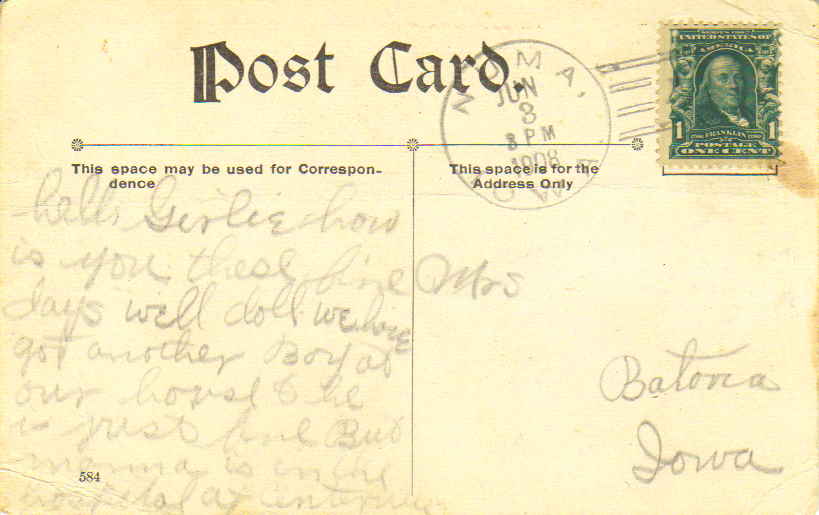 Post Card.
NUMA, IOWA
JUN
3
8 PM
1908
SERIES 1902
UNITED STATES OF
AMERICA
1 1706 FRANKLIN 1790 1
POSTAGE
ONE CENT
This space may be used for Correspon-
dence
hello Girlie how
is you these fine
days well doll we have
got another Boy at
our house & he
is just fine But
mamma is in the
hospital at
584
This space is for the
Address Only
Mrs
Batavia
Iowa